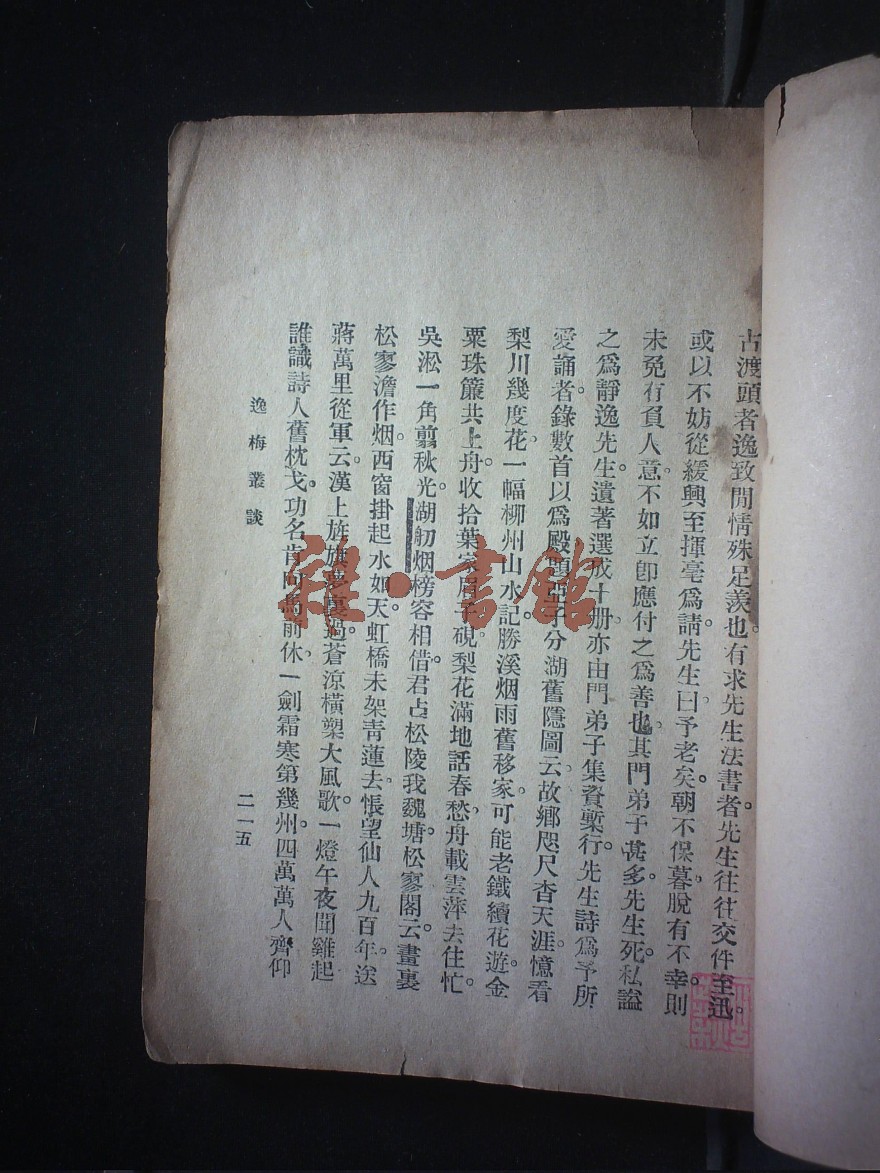 古渡頭者逸致閒情殊足羨也有求先生法書者。先生往往交件至迅。
或以不妨從緩興至揮毫爲請先生曰予老矣。朝不保暮。脫有不幸則
未免有負人意。不如立卽應付之爲善也。其門弟子甚多。先生死。私謚
之爲靜逸先生。遺著選成十册。亦由門弟子集資槧行。先生詩爲予所
愛誦者。錄數首以爲殿。題 子分湖舊隱圖云。故鄉咫尺杳天涯。憶看
梨川幾度花。一幅柳州山水記。勝溪烟雨舊移家。可能老鐵續花遊。金
粟珠簾共上舟。收拾葉家眉子硯。梨花滿地話春愁。舟載雲萍去住忙。
吳淞一角翦秋光。湖舠烟榜容相借。君占松陵我魏塘。松寥閣云。畫裏
松寥澹作烟。西窗掛起水如天。虹橋未架靑蓮去。悵望仙人九百年。送
蔣萬里從軍云。漢上旌旗夢裏過。蒼涼橫槊大風歌。一燈午夜聞雞起
誰識詩人舊枕戈。功名肯向馬前休。一劍霜寒第幾州。四萬萬人齊仰
逸梅叢談
二一五
雜·書館